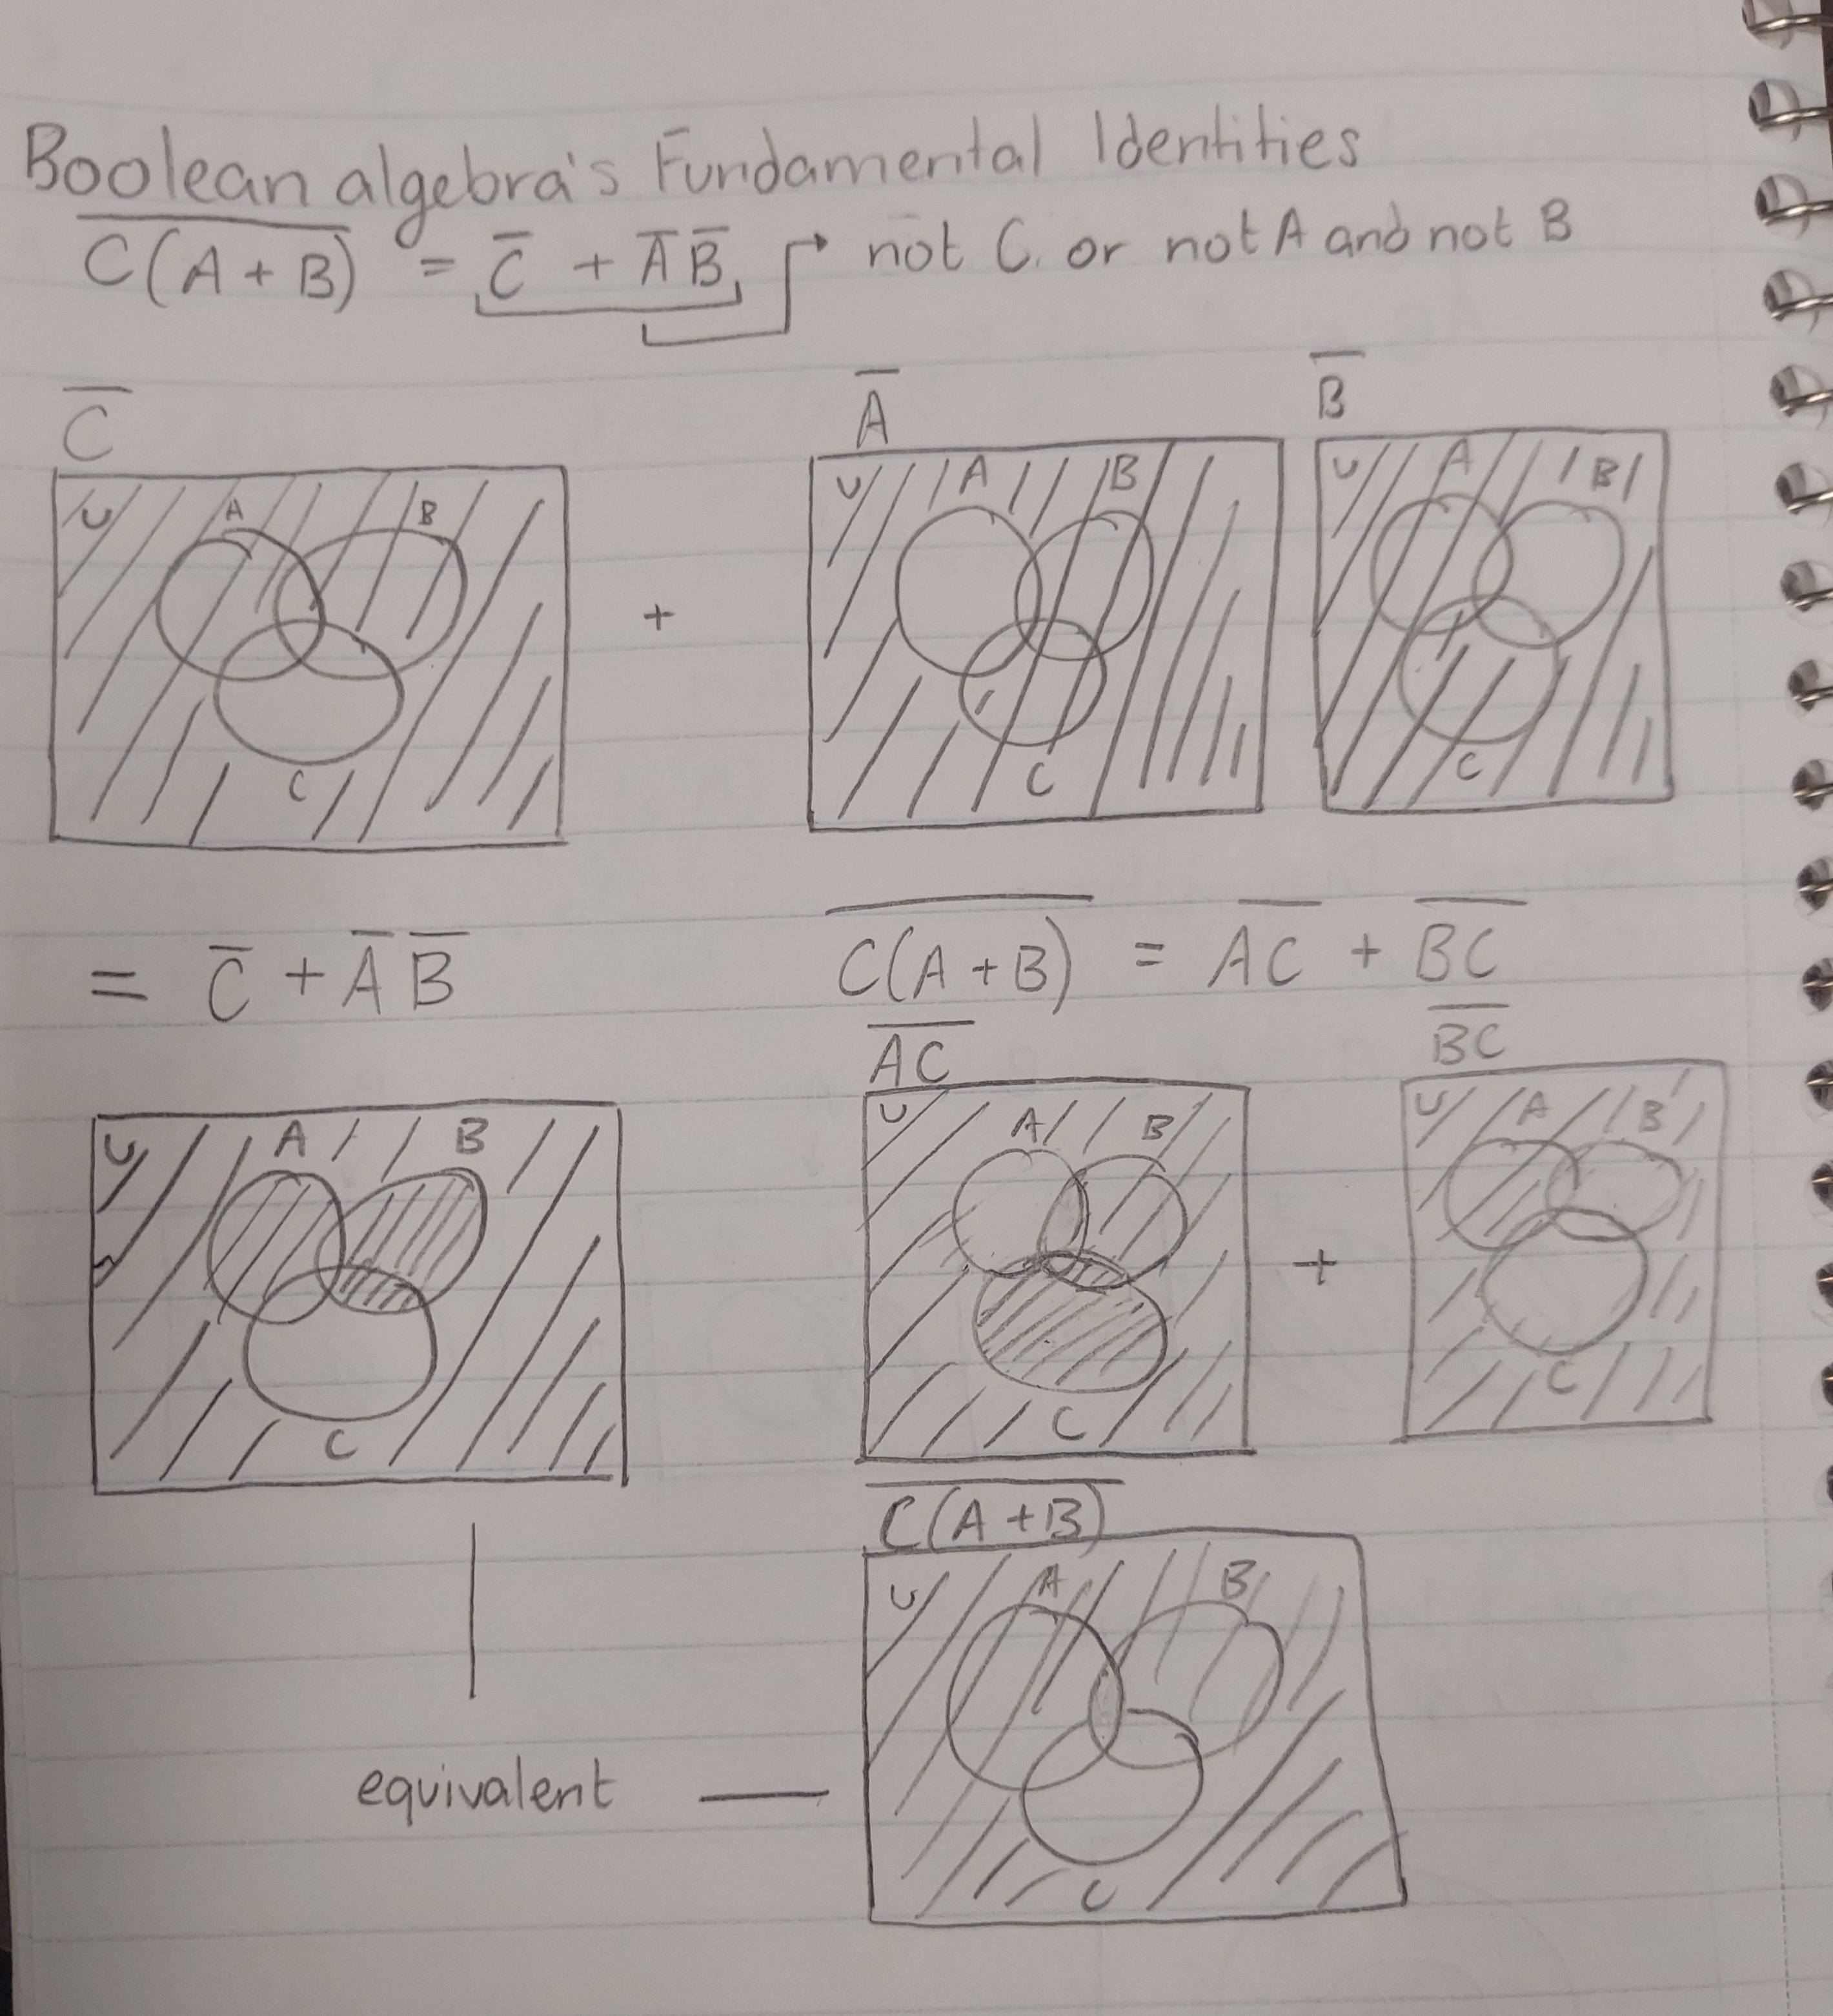 Boolean algebra's Fundamental Identities
C̅(̅A̅ ̅+̅ ̅B̅)̅ = C̅ + A̅ B̅ → not C. or not A and not B
C̅
A̅
B̅
U A B C
+
U A B C
U A B C
= C̅ + A̅ B̅
C̅(̅A̅ ̅+̅ ̅B̅)̅ = A̅C̅ + B̅C̅
A̅C̅
B̅C̅
U A B C
U A B C
+
U A B C
C̅(̅A̅ ̅+̅ ̅B̅)̅
U A B C
equivalent